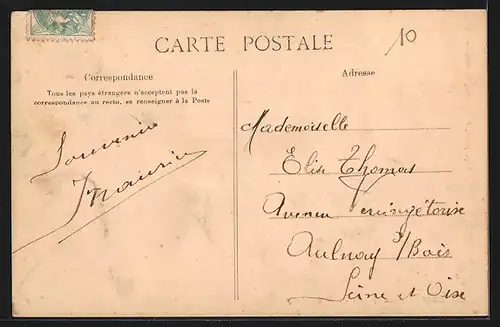 CARTE POSTALE
10
Correspondance
Tous les pays étrangers n'acceptent pas la
correspondance au recto, se renseigner à la Poste
Souvenir
Adresse
Mademoiselle
Elise Thomas
Avenue
Aulnay s/ Bois
Seine et Oise